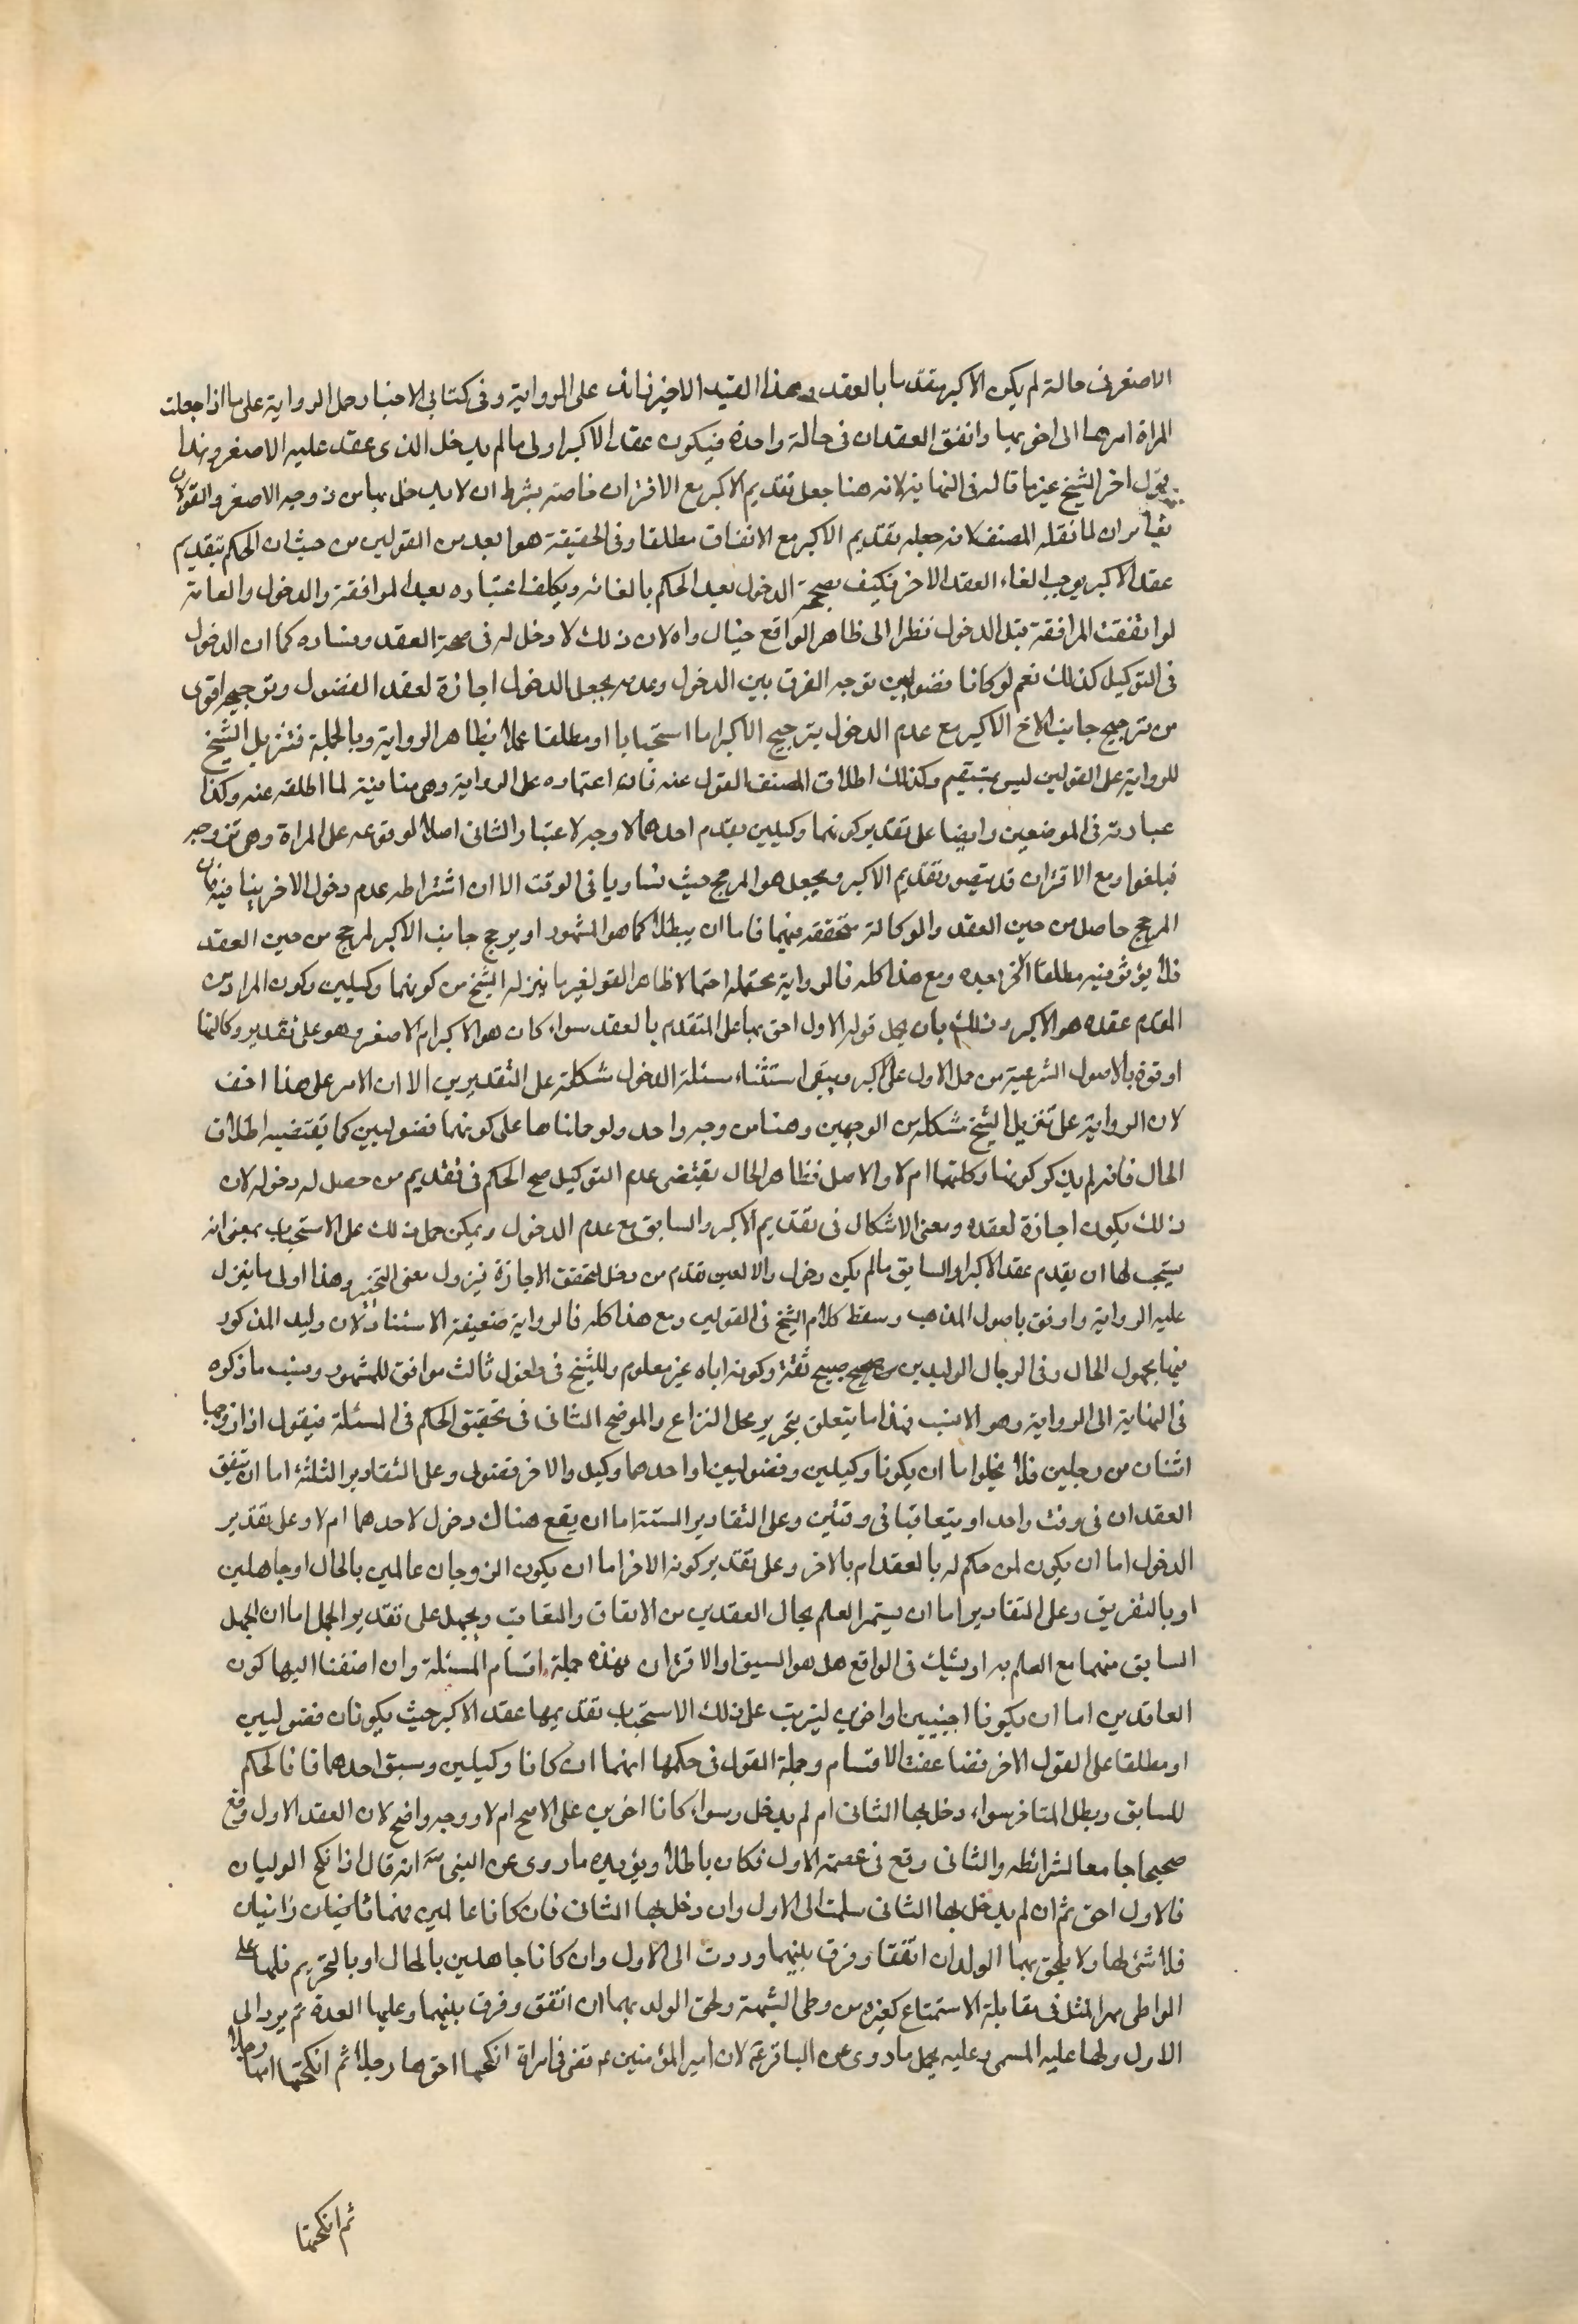 الاصغر فى حالة لم يكن الاكبر متقدما بالعقد وهذا القيد الاخير زائد على الرواية وفى كتابى الاخبار حمل الرواية على ما اذا جعلت
المراة امرهما الى اخويها واتفق العقدان فى حالة واحدة فيكون عقد الاكبر اولى ما لم يدخل الذى عقد عليه الاصغر وهذا
قول اخر للشيخ غير ما قاله فى النهاية لانه هنا جعل تقديم الاكبر مع الاقتران خاصة بشرط ان لا يدخل بها من زوجه الاصغر والقولان
يغايران لما نقله المصنف لانه جعله تقديم الاكبر مع الاتفاق مطلقا وفى الحقيقة هو ابعد من القولين من حيث ان الحكم بتقديم
عقد الاكبر يوجب الغاء العقد الاخر فكيف يصححه الدخول بعد الحكم بالغائه ويكلف اعتباره بعد المرافقة والدخول والغائه
لو اتفقت المرافقة قبل الدخول نظرا الى ظاهر الواقع خيال واه لان ذلك لا دخل له فى صحة العقد وفساده كما ان الدخول
فى التوكيل كذلك نعم لو كانا فضوليين توجه الفرق بين الدخول وعدمه بجعل الدخول اجازة لعقد الفضول وترجيحه اقوى
من ترجيح جانب الاخ الاكبر مع عدم الدخول يترجح الاكبر اما استحبابا او مطلقا عملا بظاهر الرواية وبالجملة فتنزيل الشيخ
للرواية على القولين ليس بمستقيم وكذلك اطلاق المصنف القول عنه فان اعتماده على الرواية وهى منافية لما اطلقه عنه وكذا
عبارته فى الموضعين وايضا على تقدير كونهما وكيلين يقدم احدهما لا وجه لاعتبار الثانى اصلا لوقوعه على المراة وهى متزوجة
فيلغوا ومع الاقتران قد يتصور تقديم الاكبر ويجعل هو المرجح حيث تساويا فى الوقت الا ان اشتراطه عدم دخول الاخر ينافيه لان
المرجح حاصل من حين العقد والوكالة متحققة فيهما فاما ان يبطلا كما هو المشهور او يرجح جانب الاكبر لمرجح من حين العقد
فلا يؤثر فيه مطلقا الاخر بعده ومع هذا كله فالرواية محتملة احتمالا ظاهر القولغير ما ينزله الشيخ من كونهما وكيلين وكون المراد من
المقدم عقده هو الاكبر وذلك بان يحمل قوله الاول احق بها على المتقدم بالعقد سواء كان هو الاكبر ام الاصغر وهو على تقدير وكالتهما
اوفق بالاصول الشرعية من حمل الاول على الاكبر ويبقى استثناء مسئلة الدخول مشكلة على التقديرين الا ان الامر على هذا اخف
لان الرواية على تنزيل الشيخ مشكلة من الوجهين وهنا من وجه واحد ولو حملناها على كونهما فضوليين كما يقتضيه اطلاق
الحال فانه لم يذكر كونهما وكلتهما ام لا والاصل فظاهر الحال يقتضى عدم التوكيل صح الحكم فى تقديم من حصل له دخوله لان
ذلك يكون اجازة لعقده ومعنى الاشكال فى تقديم الاكبر والسابق مع عدم الدخول ويمكن حمل ذلك على الاستحباب بمعنى انه
يستحب لها ان يقدم عقد الاكبر او السابق ما لم يكن دخول والا لتعين تقدم من دخل لتحقق الاجازة فيزول معنى التخيير وهذا اولى ما ينزل
عليه الرواية واوفق باصول المذهب وسقط كلام الشيخ فى القولين ومع هذا كله فالرواية ضعيفة الاسناد لان وليد المذكور
فيها مجهول الحال وفى الرجال الوليد بن صبيح ثقة وكونه اياه غير معلوم وللشيخ فى قول ثالث موافق للمشهور ونسب ما ذكره
فى النهاية الى الرواية وهو الانسب فهذا ما يتعلق بتحرير محل النزاع والموضع الثانى فى تحقيق الحكم فى المسئلة فيقول اذا زوجها
اثنان من رجلين فلا يخلوا اما ان يكونا وكيلين وفضوليين او احدهما وكيل والاخر فضولى وعلى التقادير الثلثة اما ان يتفق
العقدان فى وقت واحد او يتعاقبا فى وقتين وعلى التقادير الستة اما ان يقع هناك دخول لاحدهما ام لا وعلى تقدير
الدخول اما ان يكون لمن حكم له بالعقد ام بالاخر وعلى تقدير كونه الاخر اما ان يكون الزوجان عالمين بالحال او جاهلين
او بالتفريق وعلى التقادير اما ان يستمر العلم بحال العقدين من الاتفاق والتعاقب ويجهل على تقدير الجهل اما ان يجهل
السابق منهما مع العلم به او يشك فى الواقع هل هو السبق او الاقتران فهذه جملة اقسام المسئلة وان اضفنا اليها كون
العاقدين اما ان يكونا اجنبيين او اخوين ليترتب على ذلك الاستحباب تقديمها عقد الاكبر حيث يكونان فضوليين
او مطلقا على القول الاخر تضاعفت الاقسام وجملة القول فى حكمها انهما ان كانا وكيلين وسبق احدهما فالحكم
للسابق وبطل المتاخر سواء دخل بها الثانى ام لم يدخل وسواء كانا اخوين على الاصح ام لا ووجه واضح لان العقد الاول وقع
صحيحا جامعا لشرائطه والثانى وقع فى عصمة الاول فكان باطلا ويؤيده ما روى عن النبى ص انه قال اذا نكح الوليان
فالاول احق ثم ان لم يدخل بها الثانى سلمت الى الاول وان دخل بها الثانى فان كانا عالمين فهما زانيان
فلا شئ لها ولا يلحق بهما الولد ان اتفقا وفرق بينهما وردت الى الاول وان كانا جاهلين بالحال او بالتحريم فلها على
الواطى مهر المثل فى مقابلة الاستمتاع كغيره من وطى الشبهة ولحق الولد بهما ان اتفق وفرق بينهما وعليها العدة ثم يرد الى
الاول ولها عليه المسمى وعليه يحمل ما روى عن الباقر ع لان امير المؤمنين ع قضى فى امراة انكحها اخوها رجلا ثم انكحتها امها رجلا
ثم انكحتها